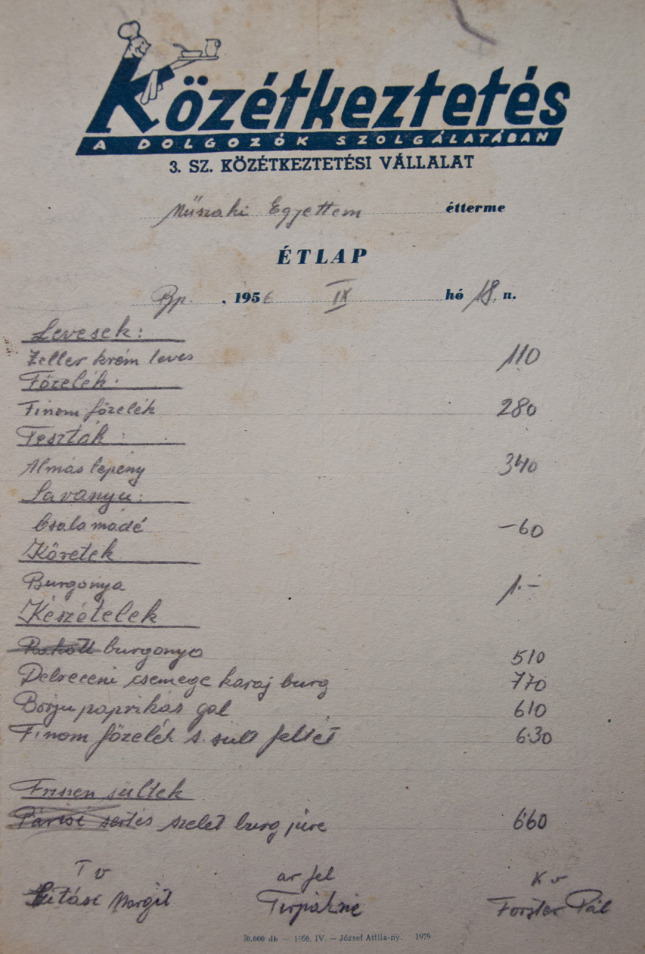 Közétkeztetés
A DOLGOZÓK SZOLGÁLATÁBAN
3. SZ. KÖZÉTKEZTETÉSI VÁLLALAT
Műszaki Egyettem étterme
ÉTLAP
Bp. , 1956 IX hó 18. n.
Levesek:
Zeller krém leves 110
Főzelék.
Finom főzelék 280
Tészták:
Almás lepény 340
Savanyu:
Csalamádé -60
Köretek
Burgonya 1.-
Készételek
Rakott burgonya 510
Debreceni csemege karaj burg 770
Borju paprikás gal 610
Finom főzelék s. sült feltét 6·30
Frissen sültek
Párisi sertés szelet burg püré 660
T v ar fel K v
Margit Forster Pál
30.000 db — 1956. IV. — József Attila-ny.